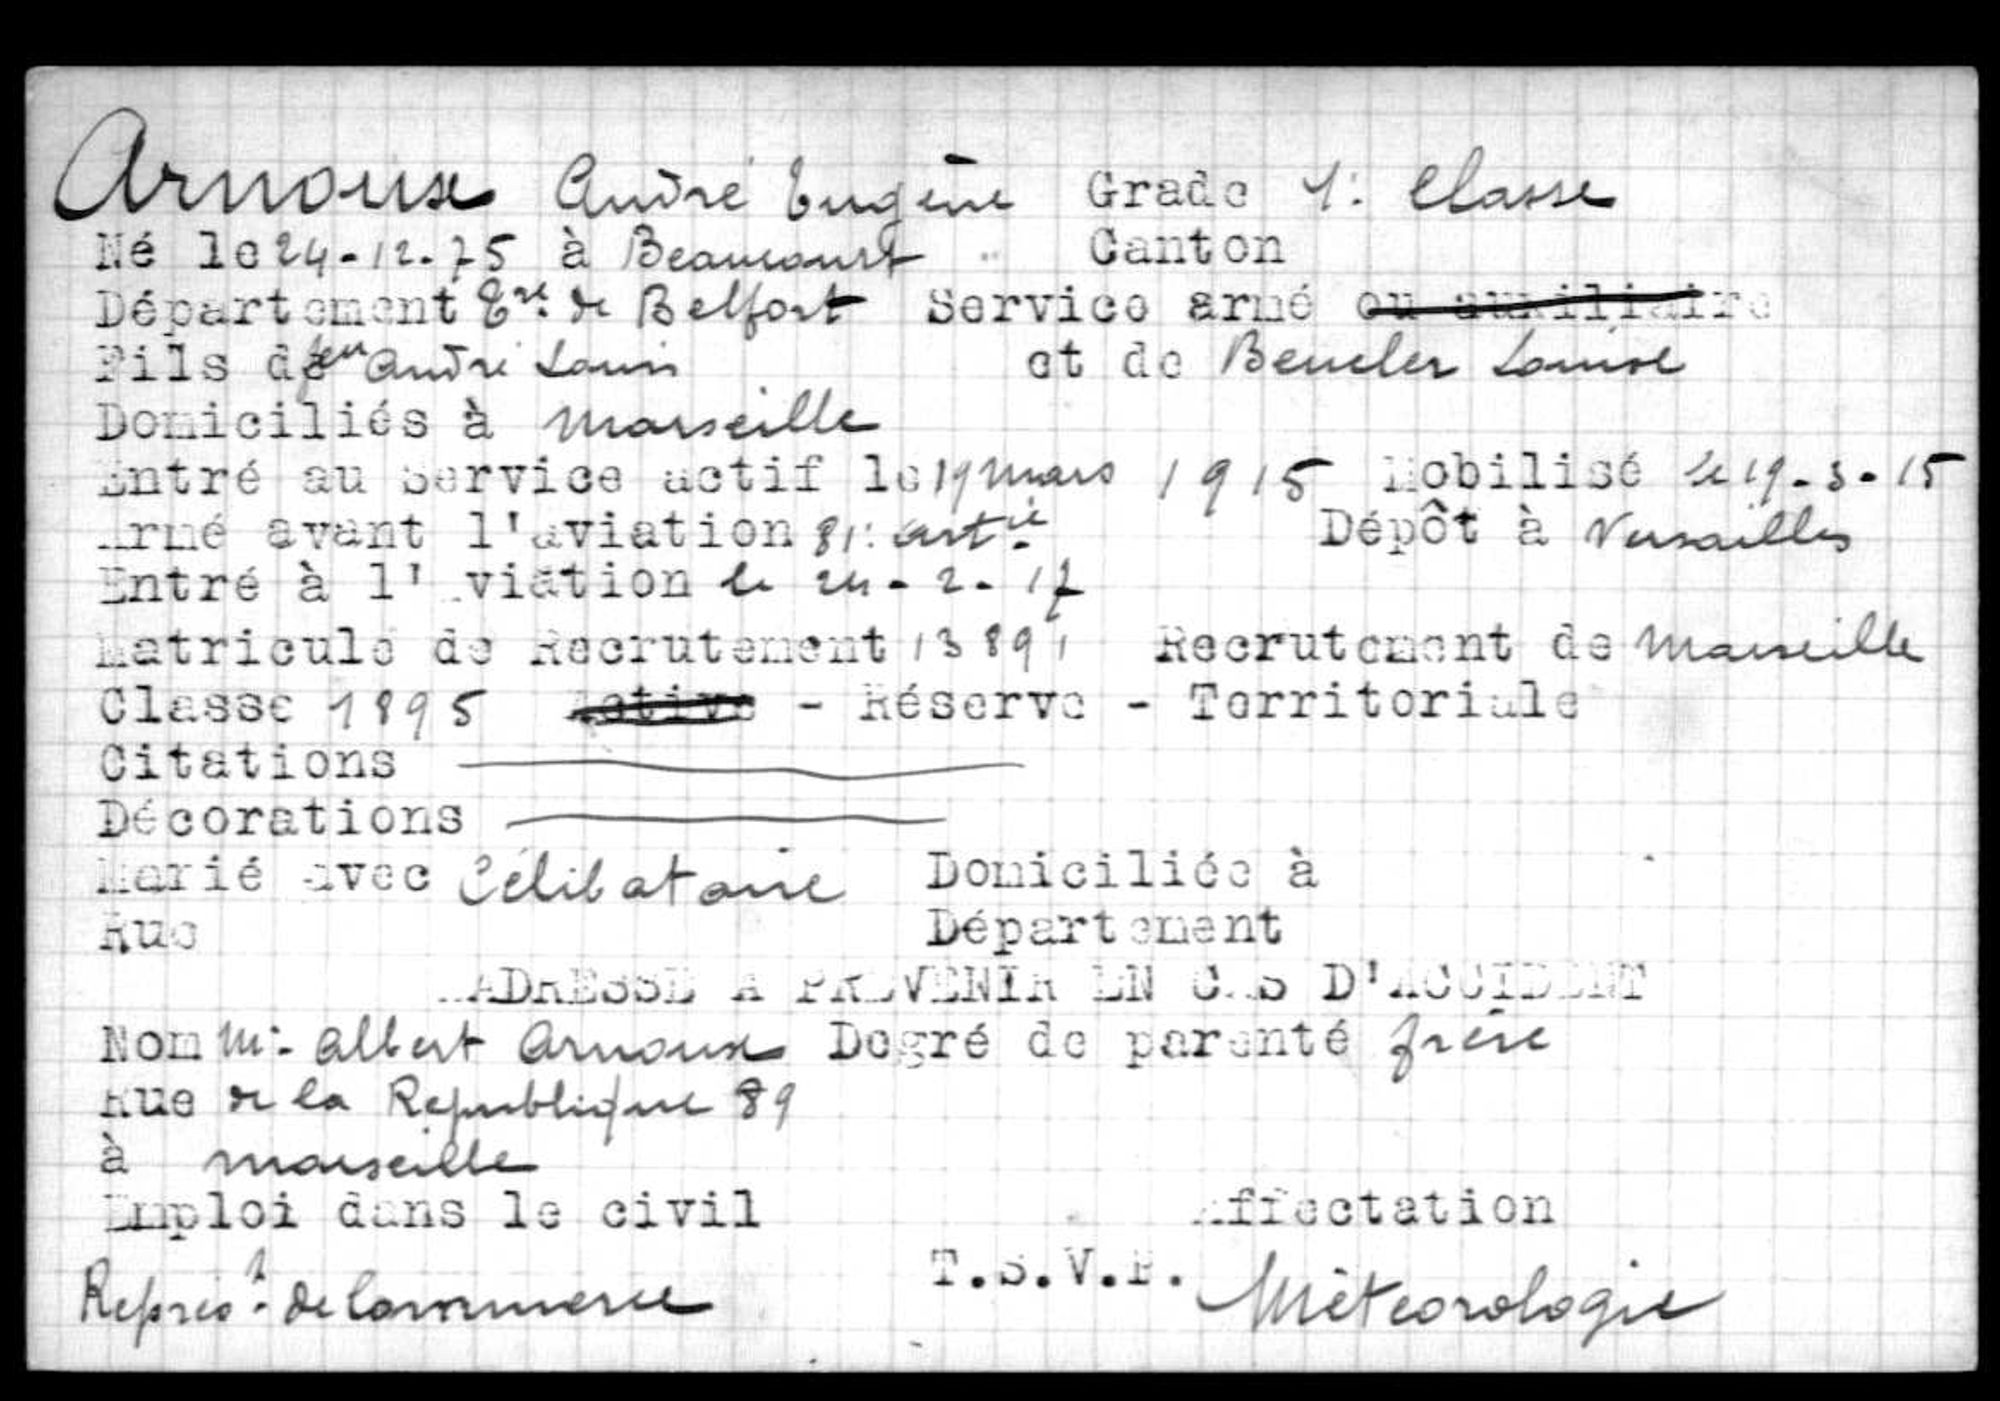 Arnoux André Eugène Grade 1e Classe
Né le 24-12-75 à Beaucourt Canton
Département Erre de Belfort Service armé ou auxiliaire
Fils de feu André Louis et de Beucler Louise
Domiciliés à Marseille
Entré au Service actif le 19 mars 1915 Mobilisé le 19-3-15
Armé avant l'aviation 81e artie Dépôt à Versailles
Entré à l'Aviation le 24-2-17
Matricule de Recrutement 13891 Recrutement de Marseille
Classe 1895 Active - Réserve - Territoriale
Citations
Décorations
Marié avec Célibataire Domiciliée à
Rue Département
ADRESSE A PREVENIR EN CAS D'ACCIDENT
Nom Mr Albert Arnoux Degré de parenté frère
Rue de la République 89
à Marseille
Emploi dans le civil Affectation
Représt de Commerce T.S.V.P. Météorologie